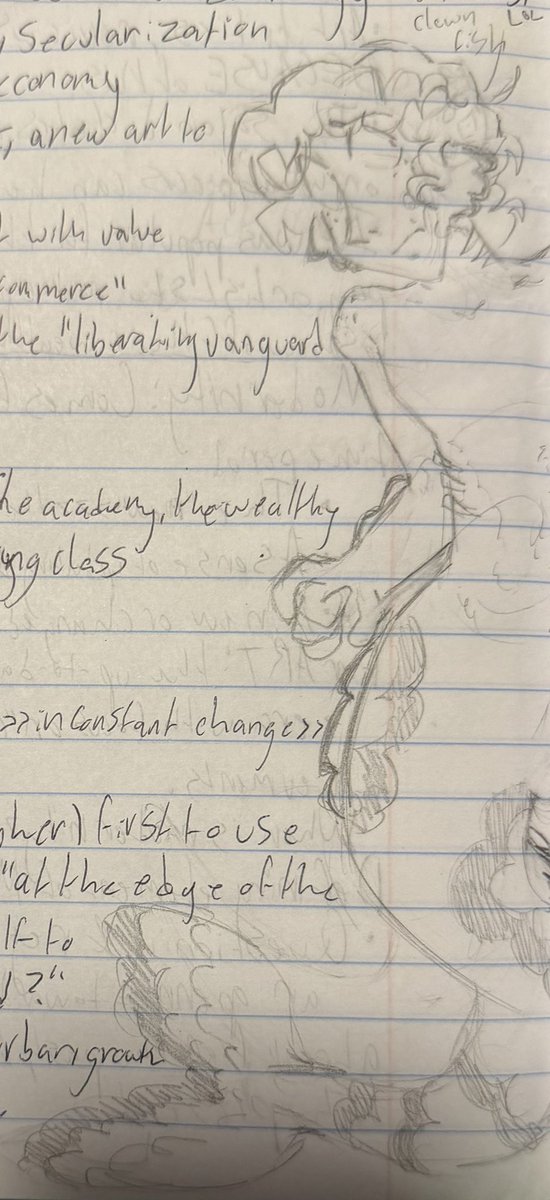 clown
fish
LOL
Secularization
economy
, a new art to
with value
commerce"
the "liberating vanguard
the academy, the wealthy
class
>> in constant change >>
first to use
"at the edge of the
to
?"
urban growth